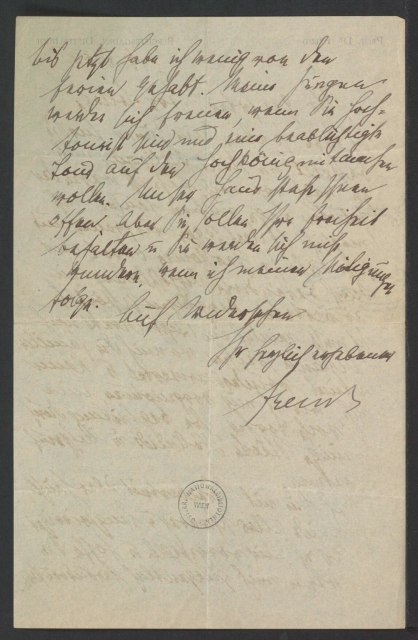 bis jetzt habe ich wenig von den
Ferien gehabt. Meine Jungen
werden sich freuen wenn Sie Hoch-
tourist sind und eine beabsichtigte
Tour auf den Hochkönig mitmachen
wollen. Unser Haus steht Ihnen
offen. Aber Sie sollen Ihre Freiheit
behalten u Sie werden sich nicht
wundern, wenn ich meinen Nötigungen
folge.
Auf Wiedersehen
Ihr herzlich ergebener
Freud